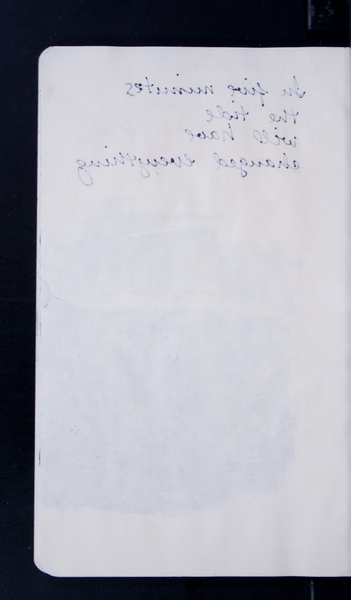 In five minutes
the tide
will have
changed everything